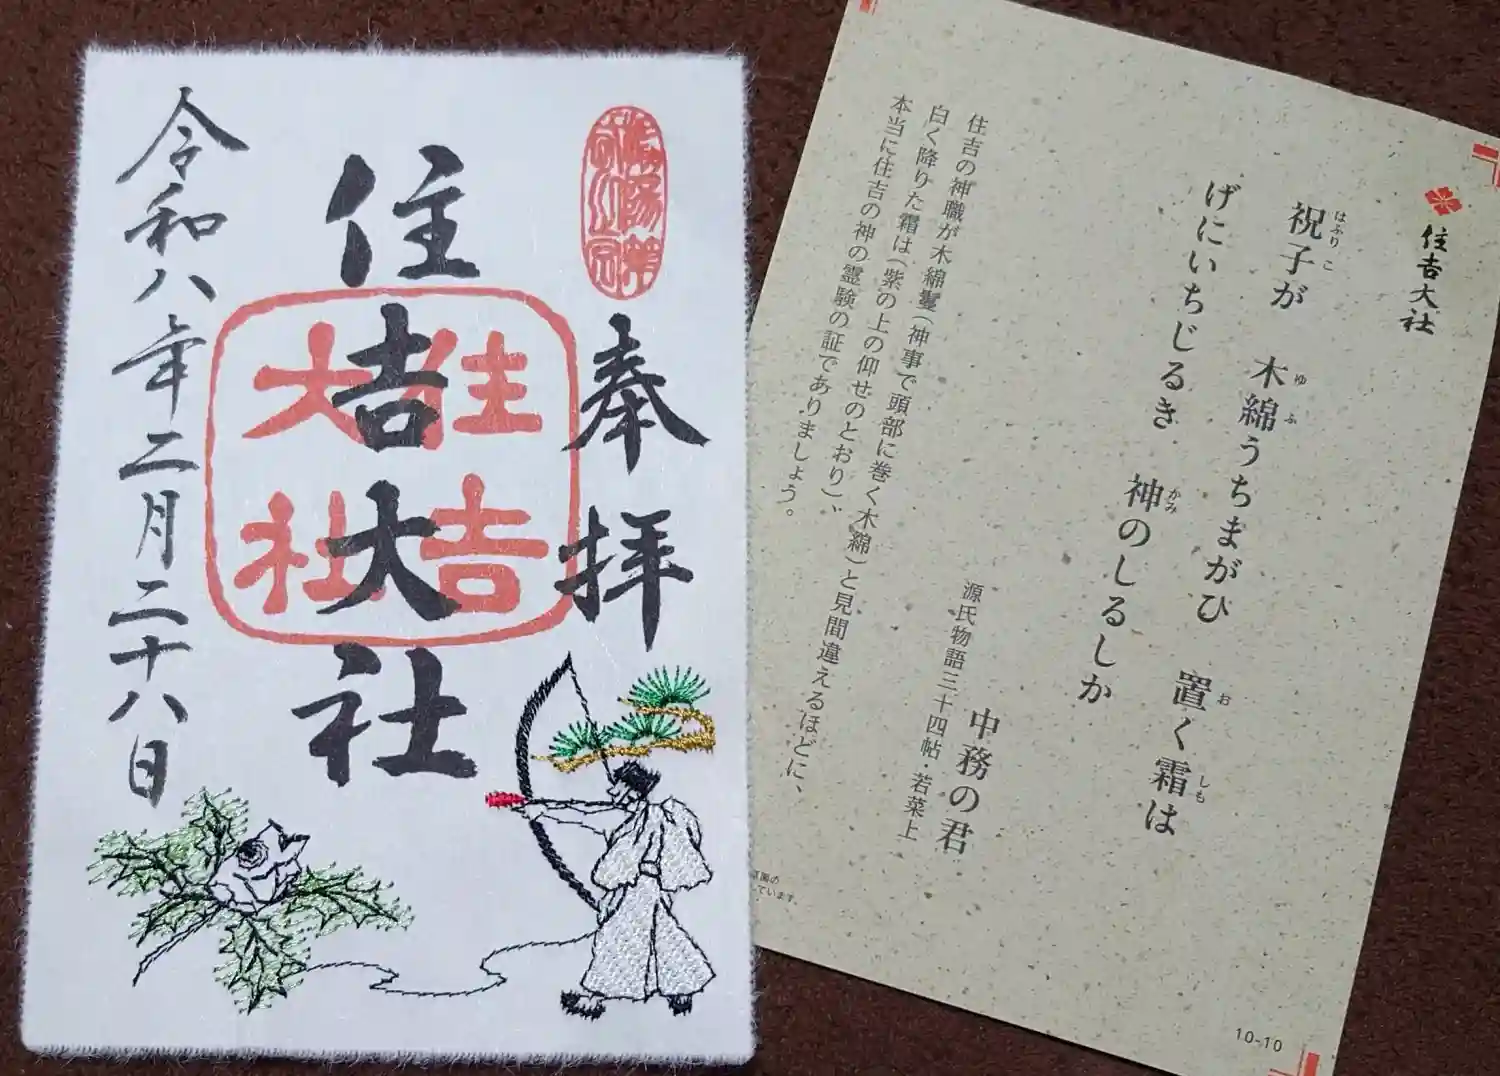 奉拝
住吉大社
住吉大社
令和八年二月二十八日
住吉大社
祝子が 木綿うちまがひ 置く霜は
はふりこ ゆふ お しも
げにいちじるき 神のしるしか
かみ
中務の君
源氏物語三十四帖・若菜上
住吉の神職が木綿鬘(神事で頭部に巻く木綿)と見間違えるほどに、
白く降りた霜は(紫の上の仰せのとおり)、
本当に住吉の神の霊験の証でありましょう。
ています。
10-10